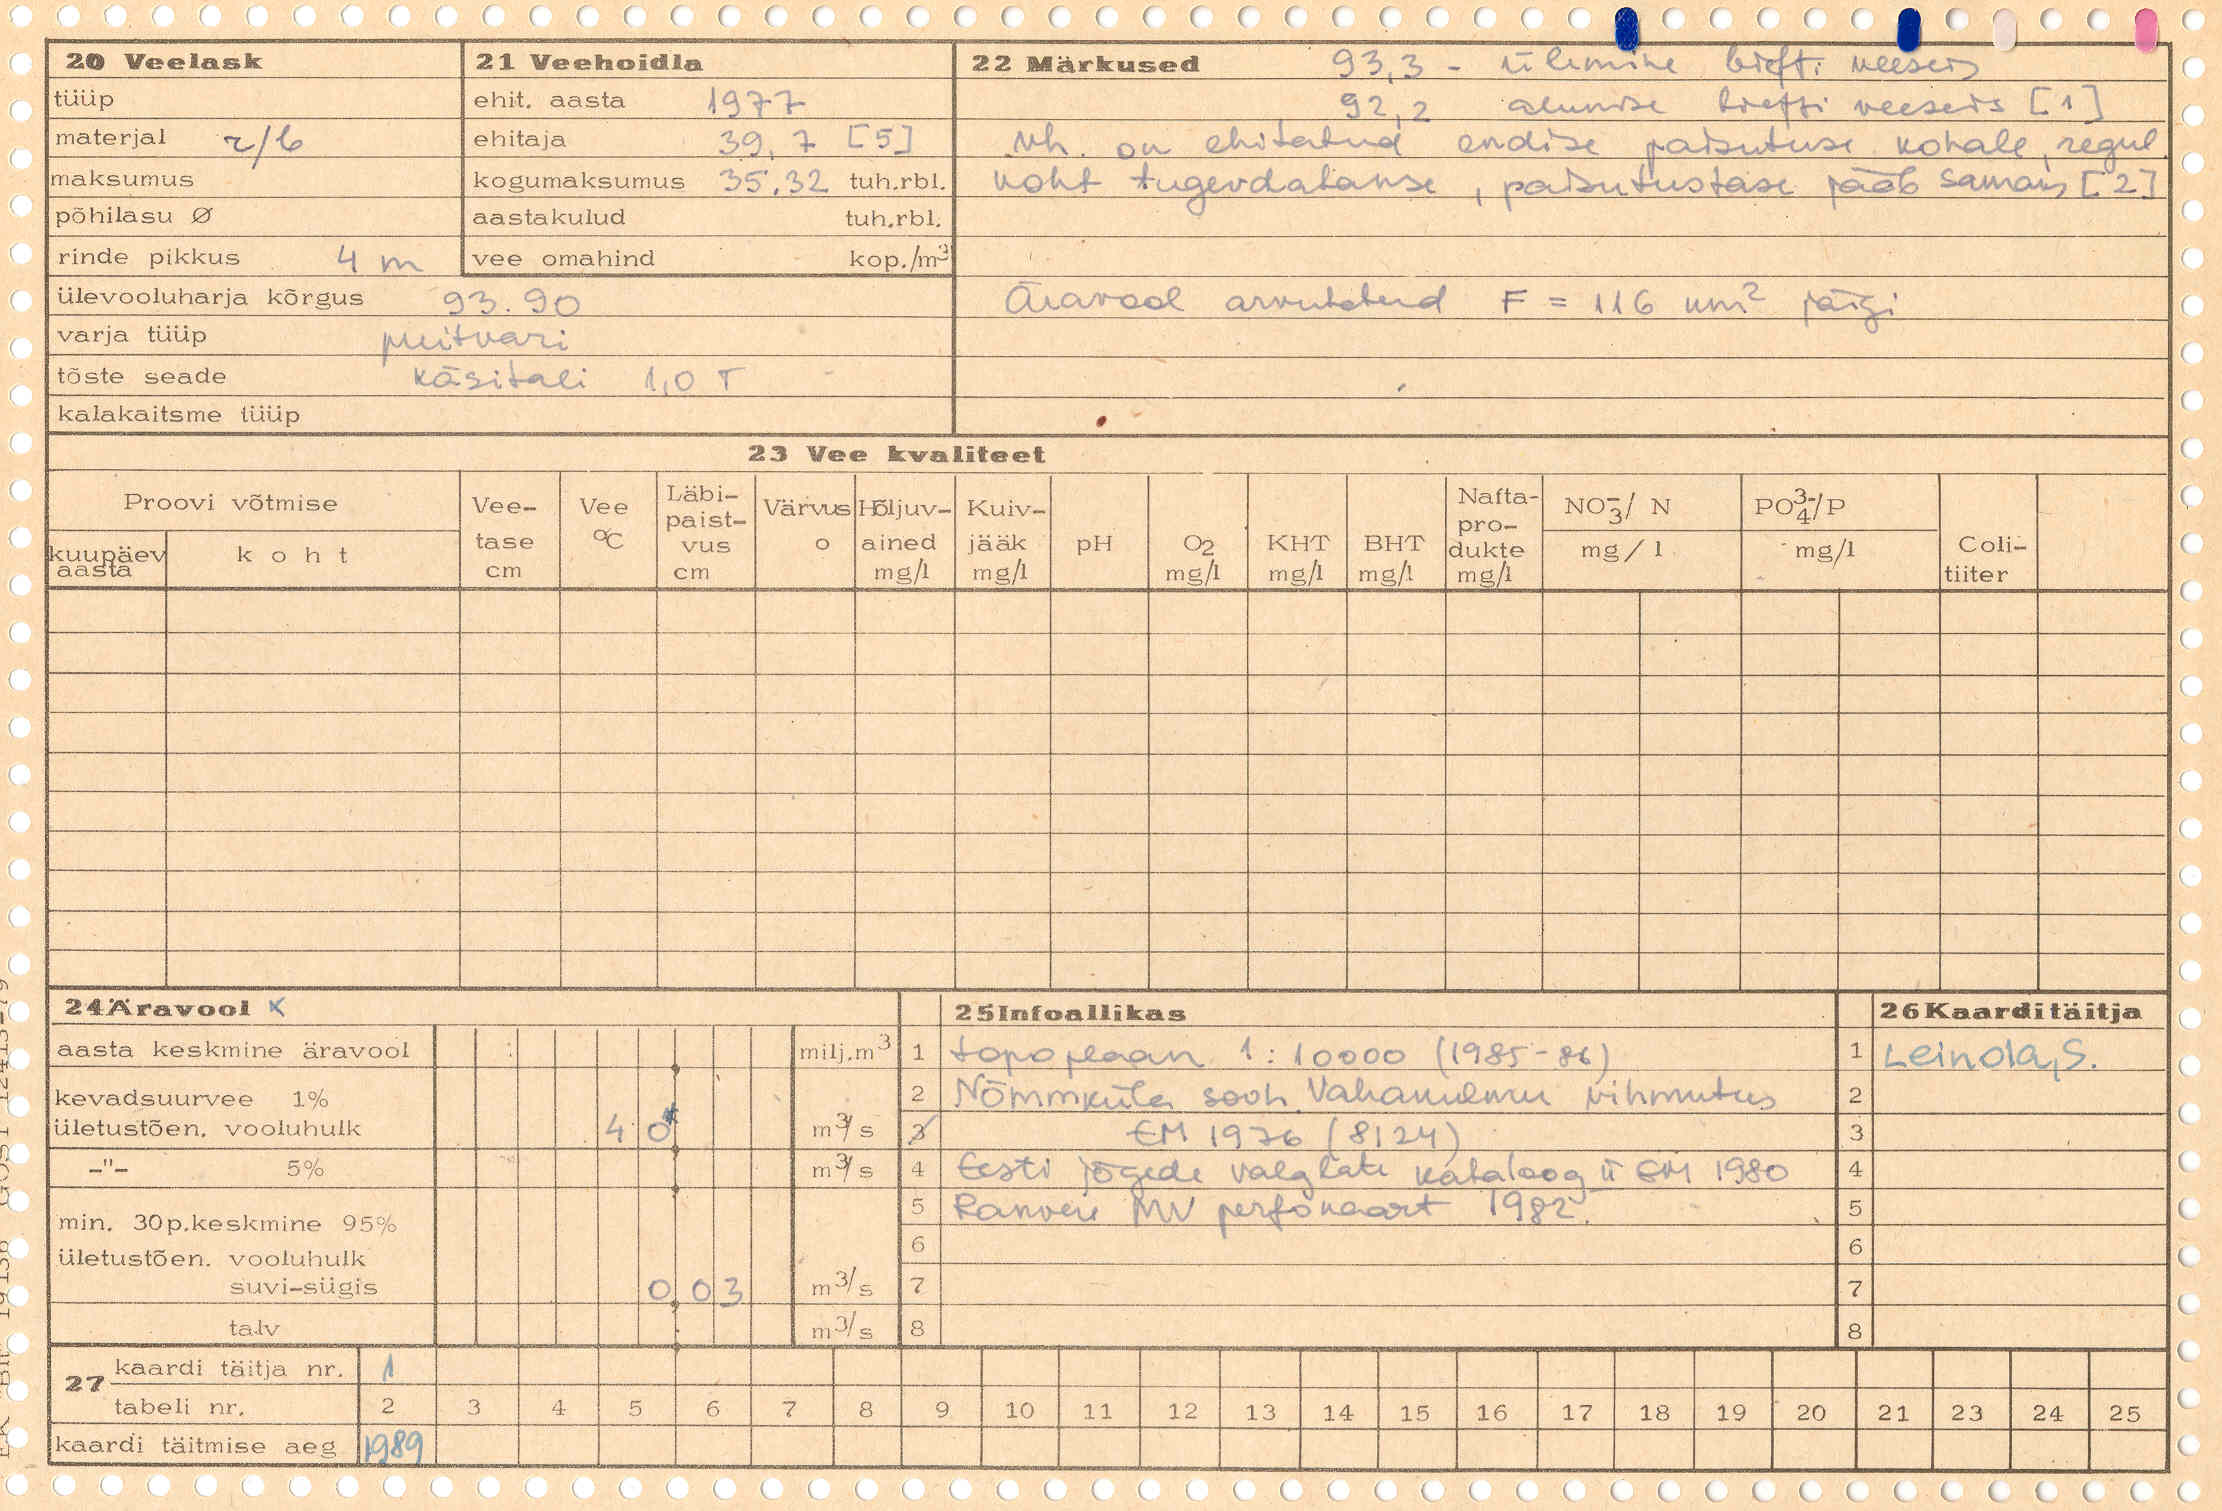 20 Veelask
tüüp
materjal r/b
maksumus
põhilasu Ø
rinde pikkus 4 m
ülevooluharja kõrgus 93.90
varja tüüp puitvari
tõste seade käsitali 1,0 T
kalakaitsme tüüp
21 Veehoidla
ehit. aasta 1977
ehitaja 39,7 [5]
kogumaksumus 35,32 tuh.rbl.
aastakulud tuh.rbl.
vee omahind kop./m³
22 Märkused 93,3 - ülemine biefi veeseis
92,2 alumise biefi veeseis [1]
Vh. on ehitatud endise paisutuse kohale, regul.
koht tugevdatakse, paisutustase jääb samaks [2]
Äravool arvutatud F = 116 km² järgi
23 Vee kvaliteet
Proovi võtmise
kuupäev aasta
koht
Vee-
tase
cm
Vee
°C
Läbi-
paist-
vus
cm
Värvus
o
Hõljuv-
ained
mg/l
Kuiv-
jääk
mg/l
pH
O2
mg/l
KHT
mg/l
BHT
mg/l
Nafta-
pro-
dukte
mg/l
NO₃⁻/ N
mg/l
PO₄³⁻/P
mg/l
Coli-
tiiter
24 Äravool x
aasta keskmine äravool milj.m³
kevadsuurvee 1%
ületustõen. vooluhulk 4 0 m³/s
-"- 5% m³/s
min. 30p.keskmine 95%
ületustõen. vooluhulk
suvi-sügis 0 0 3 m³/s
talv m³/s
25 Infoallikas
1 topoplaan 1:10000 (1985-86)
2 Nõmmküla sooh. Vahakulmu vihmutus
3 EM 1976 (8124)
4 Eesti jõgede valglate kataloog II EM 1980
5 Rakvere MV perfokaart 1982.
6
7
8
26 Kaarditäitja
1 Leinola, S.
2
3
4
5
6
7
8
27 kaardi täitja nr. 1
tabeli nr. 2 3 4 5 6 7 8 9 10 11 12 13 14 15 16 17 18 19 20 21 23 24 25
kaardi täitmise aeg 1989